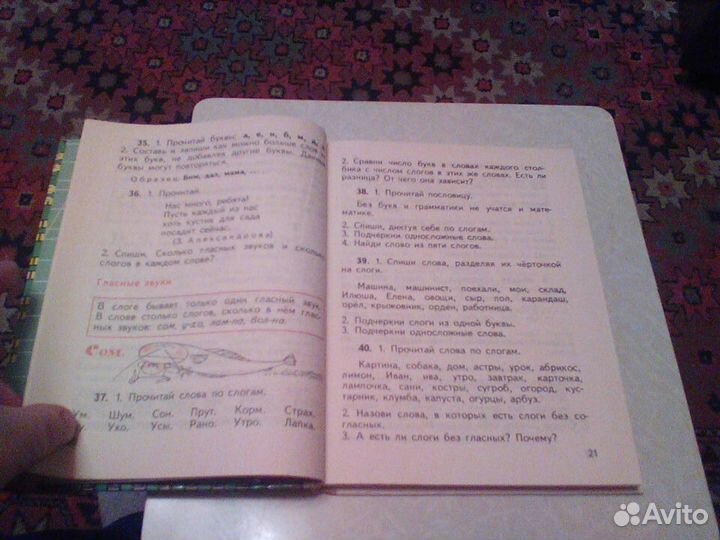 35. 1. Прочитай буквы: а, е, и, б, м, д,
2. Составь и запиши как можно больше слов
этих букв, не добавляя другие буквы. Данные
буквы могут повторяться.
Образец. Бим, дал, мама, ...
36. 1. Прочитай.
Нас много, ребята!
Пусть каждый из нас
хоть кустик для сада
посадит сейчас.
(З. Александрова)
2. Спиши. Сколько гласных звуков и сколько
слогов в каждом слове?
Гласные звуки
В слоге бывает только один гласный звук.
В слове столько слогов, сколько в нём глас-
ных звуков: сом, у-ха, лам-па, вол-на.
Сом.
37. 1. Прочитай слова по слогам.
Ум. Шум. Сон. Прут. Корм. Страх.
Ухо. Усы. Рано. Утро. Лапка.
2. Сравни число букв в словах каждого стол-
бика с числом слогов в этих же словах. Есть ли
разница? От чего она зависит?
38. 1. Прочитай пословицу.
Без букв и грамматики не учатся и мате-
матике.
2. Спиши, диктуя себе по слогам.
3. Подчеркни односложные слова.
4. Найди слово из пяти слогов.
39. 1. Спиши слова, разделяя их чёрточкой
на слоги.
Машина, машинист, поехали, мои, склад,
Илюша, Елена, овощи, сыр, пол, карандаш,
орёл, крыжовник, орден, работница.
2. Подчеркни слоги из одной буквы.
3. Подчеркни односложные слова.
40. 1. Прочитай слова по слогам.
Картина, собака, дом, астры, урок, абрикос,
лимон, Иван, ива, утро, завтрак, карточка,
лампочка, сани, костры, сугроб, огород, кус-
тарник, клумба, капуста, огурцы, арбуз.
2. Назови слова, в которых есть слоги без со-
гласных.
3. А есть ли слоги без гласных? Почему?
21
Avito